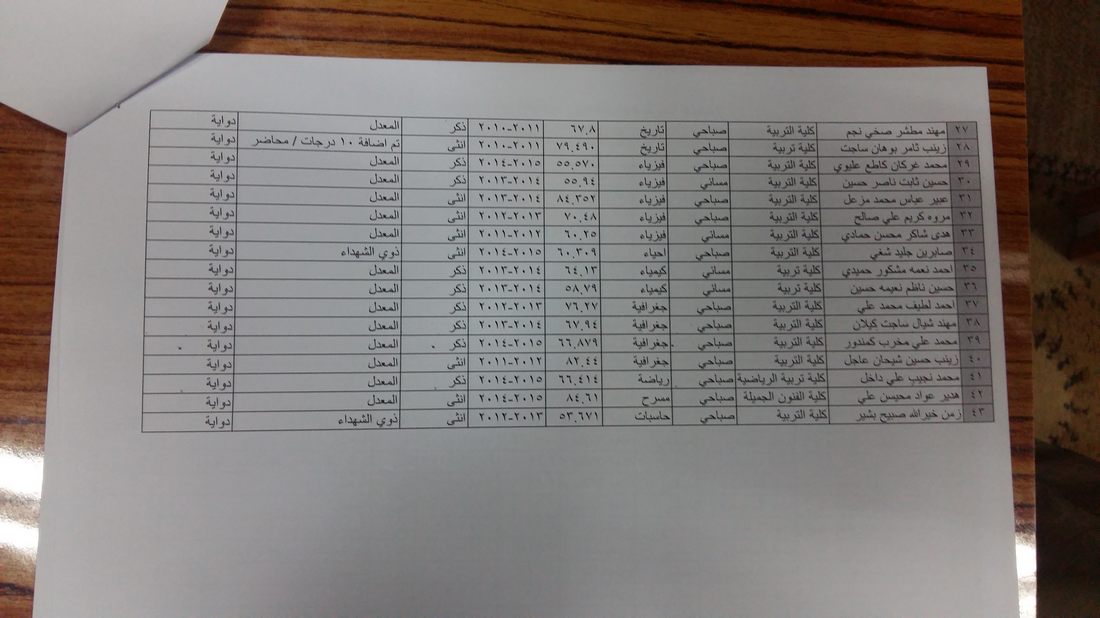 ٢٧ مهند مطشر صخي نجم كلية التربية صباحي تاريخ ٦٧.٨ ٢٠١٠-٢٠١١ ذكر المعدل دواية
٢٨ زينب ثامر بوهان ساجت كلية تربية صباحي تاريخ ٧٩.٤٩٠ ٢٠١٠-٢٠١١ انثى تم اضافة ١٠ درجات / محاضر دواية
٢٩ محمد غركان كاطع عليوي كلية التربية صباحي فيزياء ٥٥.٥٧٠ ٢٠١٤-٢٠١٥ ذكر المعدل دواية
٣٠ حسين ثابت ناصر حسين كلية التربية مسائي فيزياء ٥٥.٩٤ ٢٠١٣-٢٠١٤ ذكر المعدل دواية
٣١ عبير عباس محمد مزعل كلية التربية صباحي فيزياء ٨٤.٣٥٢ ٢٠١٣-٢٠١٤ انثى المعدل دواية
٣٢ مروه كريم علي صالح كلية التربية صباحي فيزياء ٧٠.٤٨ ٢٠١٢-٢٠١٣ انثى المعدل دواية
٣٣ هدى شاكر محسن حمادي كلية التربية مسائي فيزياء ٦٠.٢٥ ٢٠١١-٢٠١٢ انثى المعدل دواية
٣٤ صابرين جليد شغي كلية التربية صباحي احياء ٦٠.٣٠٩ ٢٠١٤-٢٠١٥ انثى ذوي الشهداء دواية
٣٥ احمد نعمه مشكور حميدي كلية تربية مسائي كيمياء ٦٤.١٣ ٢٠١٣-٢٠١٤ ذكر المعدل دواية
٣٦ حسين ناظم نعيمه حسين كلية تربية مسائي كيمياء ٥٨.٧٩ ٢٠١٣-٢٠١٤ ذكر المعدل دواية
٣٧ احمد لطيف محمد علي كلية التربية صباحي جغرافية ٧٦.٢٧ ٢٠١٢-٢٠١٣ ذكر المعدل دواية
٣٨ مهند شيال ساجت كيلان كلية التربية صباحي جغرافية ٦٧.٩٤ ٢٠١٣-٢٠١٤ ذكر المعدل دواية
٣٩ محمد علي مخرب كمندور كلية التربية صباحي جغرافية ٦٦.٨٧٩ ٢٠١٤-٢٠١٥ ذكر المعدل دواية
٤٠ زينب حسين شيحان عاجل كلية التربية صباحي جغرافية ٨٢.٤٤ ٢٠١١-٢٠١٢ انثى المعدل دواية
٤١ محمد نجيب علي داخل كلية تربية الرياضية صباحي رياضة ٦٦.٤١٤ ٢٠١٤-٢٠١٥ ذكر المعدل دواية
٤٢ هدير عواد محيسن علي كلية الفنون الجميلة صباحي مسرح ٨٤.٦١ ٢٠١٤-٢٠١٥ انثى المعدل دواية
٤٣ زمن خير الله صبيح بشير كلية التربية صباحي حاسبات ٥٣.٦٧١ ٢٠١٢-٢٠١٣ انثى ذوي الشهداء دواية